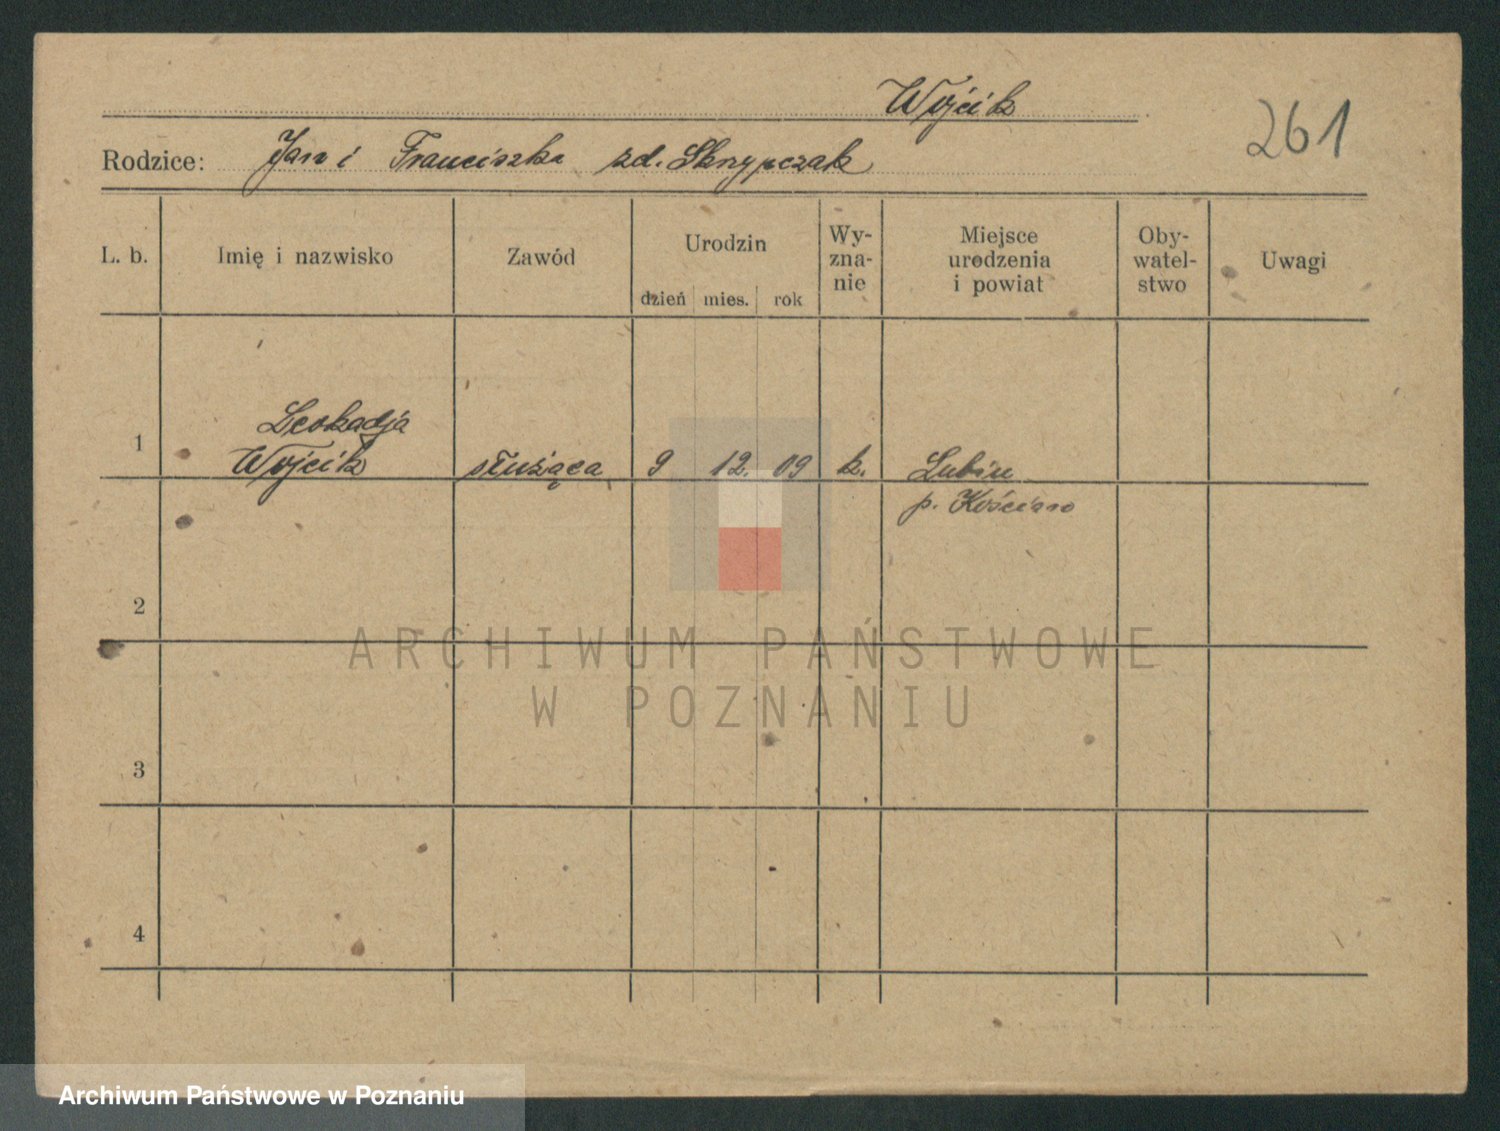 Wójcik
261
Rodzice: Jan i Franciszka zd. Skrzypczak
L. b. Imię i nazwisko Zawód Urodzin dzień mies. rok Wy-zna-nie Miejsce urodzenia i powiat Oby-watel-stwo Uwagi
Leokadja
1 Wójcik służąca 9 12. 09 k. Lubiń
p. Kościan
2
ARCHIWUM PAŃSTWOWE
W POZNANIU
3
4
Archiwum Państwowe w Poznaniu